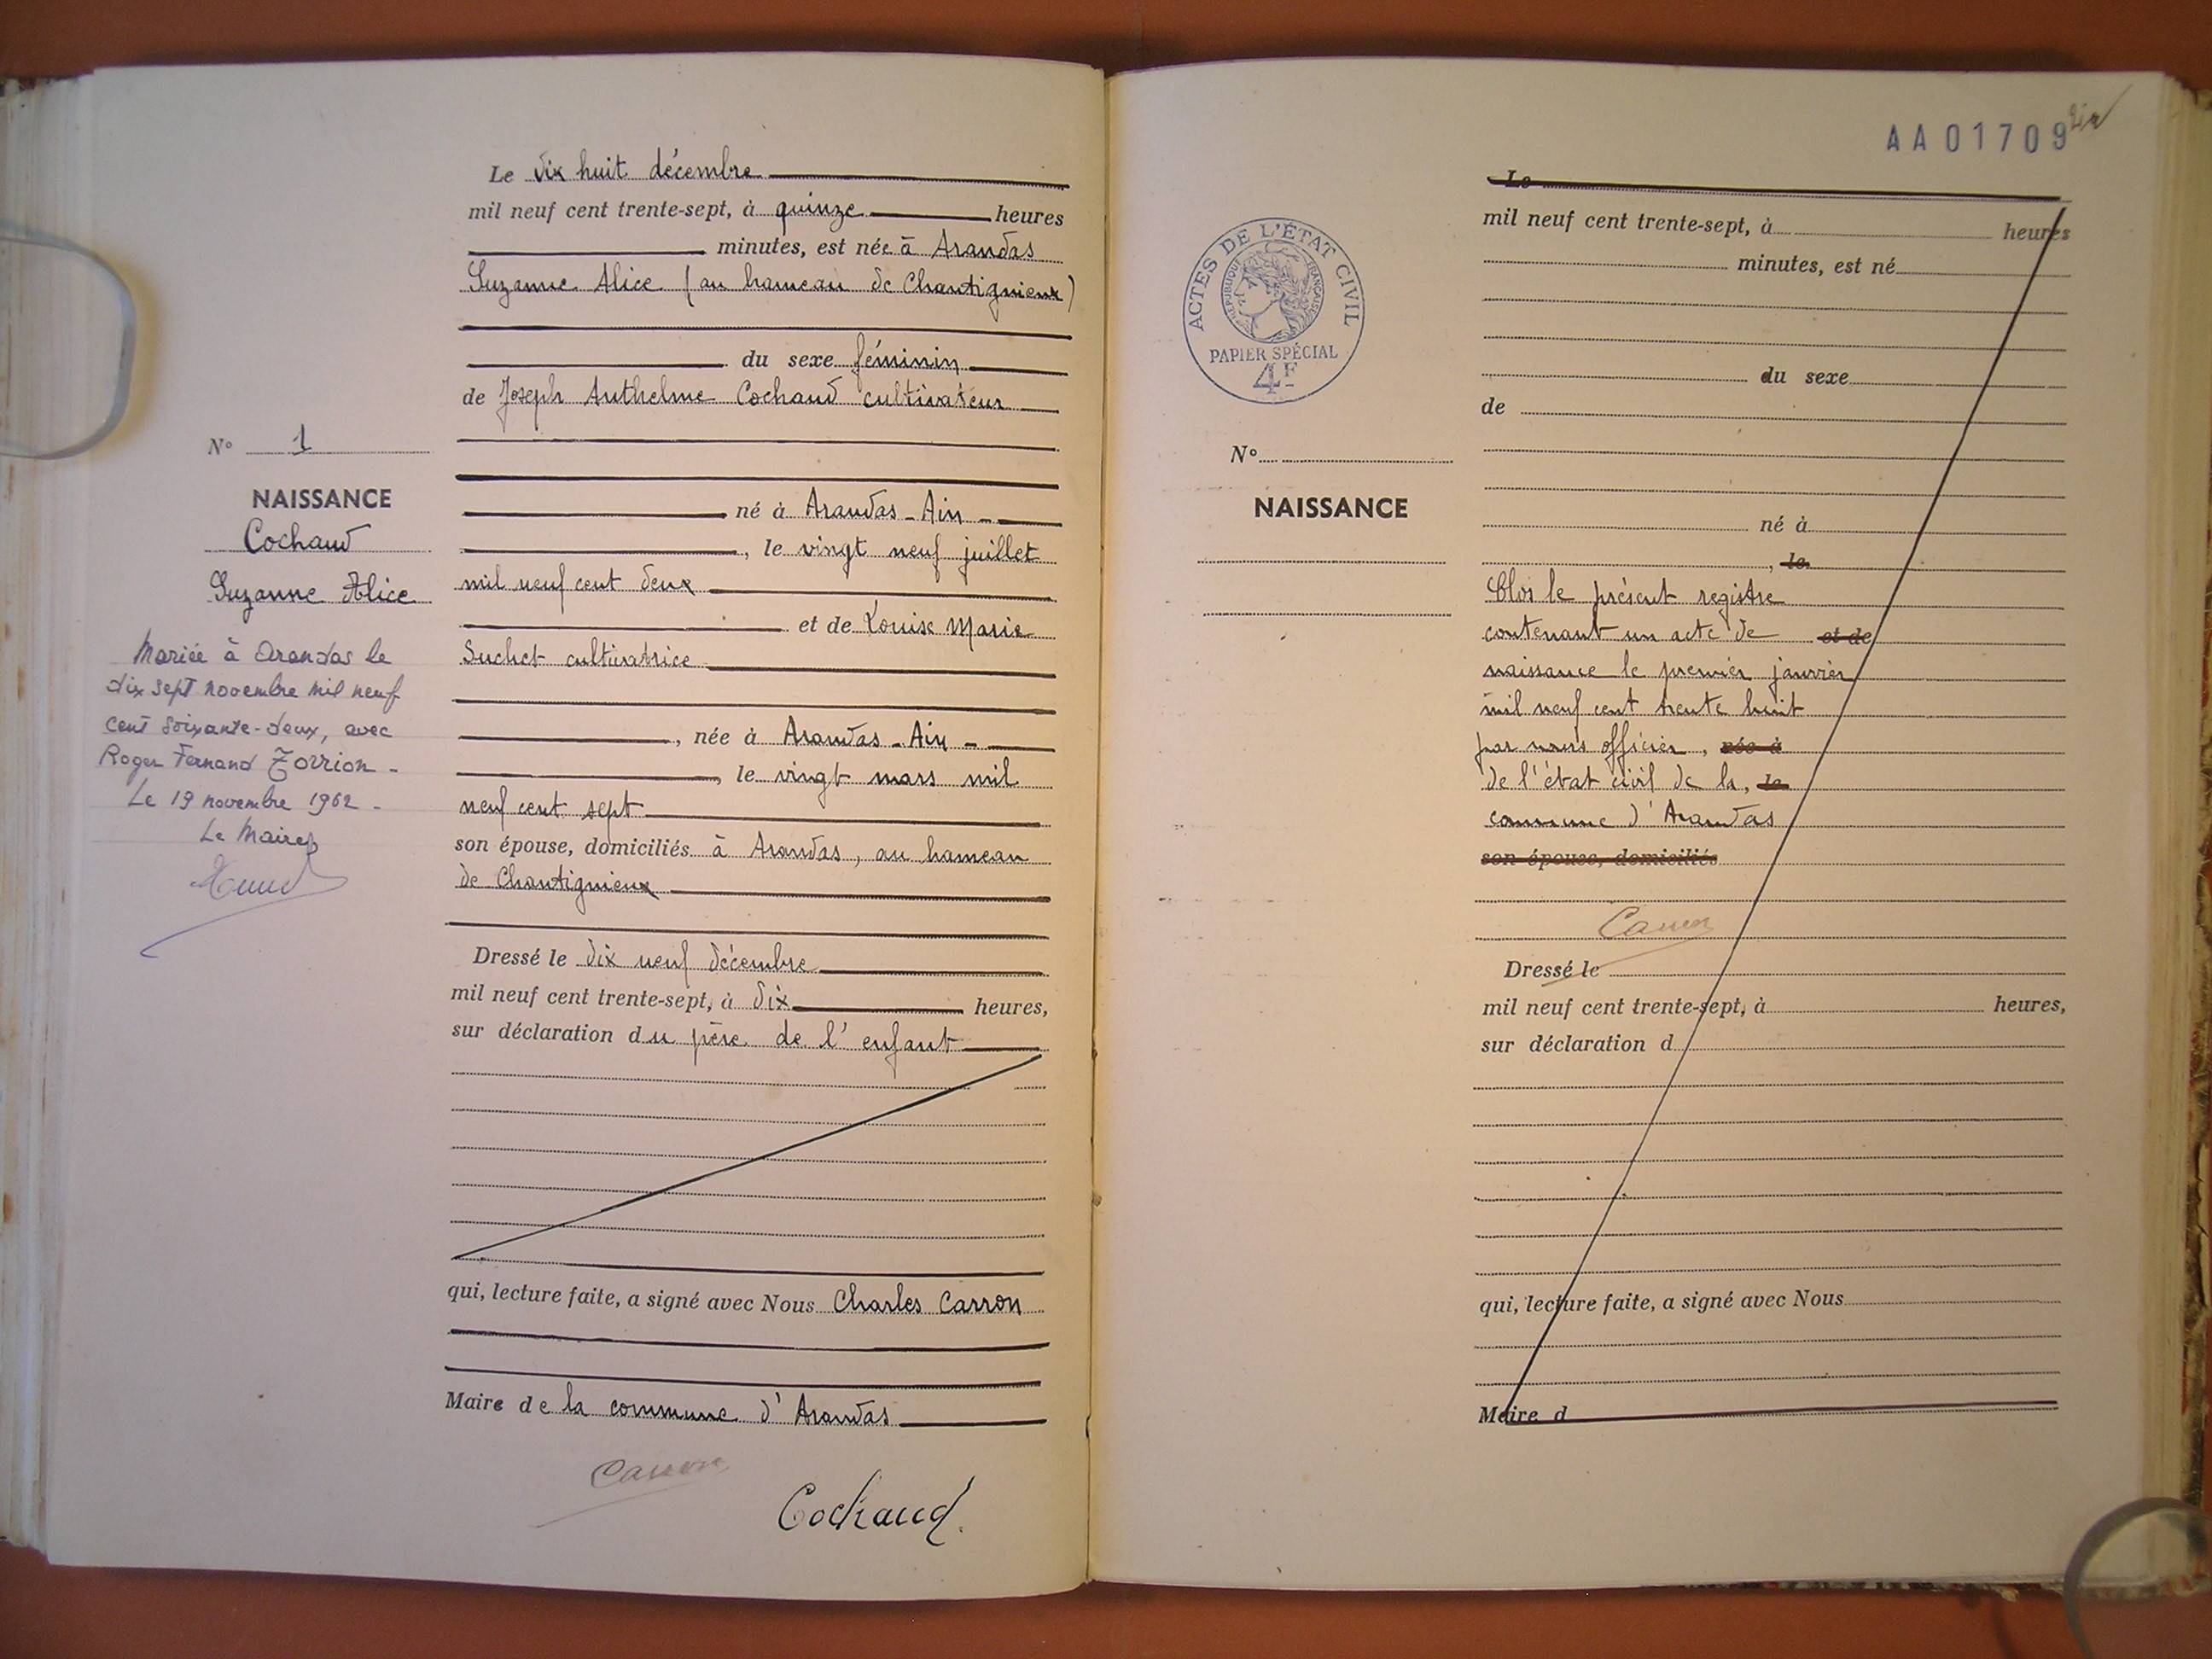 Le dix huit décembre
mil neuf cent trente-sept, à quinze heures
minutes, est née à Arandas
Suzanne Alice (au hameau de Chantignieux)
du sexe féminin
de Joseph Anthelme Cochaud cultivateur
N° 1
NAISSANCE
Cochaud
Suzanne Alice
né à Arandas - Ain -
, le vingt neuf juillet
mil neuf cent deux
et de Louise Marie
Suchet cultivatrice
, née à Arandas - Ain -
, le vingt mars mil
neuf cent sept
son épouse, domiciliés à Arandas, au hameau
de Chantignieux
Mariée à Arandas le
dix sept novembre mil neuf
cent soixante-deux, avec
Roger Fernand Zorrion -
Le 19 novembre 1962 -
Le Maire
Dressé le dix neuf décembre
mil neuf cent trente-sept, à dix heures,
sur déclaration du père de l'enfant
qui, lecture faite, a signé avec Nous Charles Carron
Maire de la commune d'Arandas
Carron
Cochaud.
AA01709
ACTES DE L'ÉTAT CIVIL
RÉPUBLIQUE FRANÇAISE
PAPIER SPÉCIAL
4F
N°
NAISSANCE
Le
mil neuf cent trente-sept, à heures
minutes, est né
du sexe
de
né à
, le
Clos le présent registre
contenant un acte de et de
naissance le premier janvier
mil neuf cent trente huit
par nous officier, née à
de l'état civil de la, le
commune d'Arandas
son épouse, domiciliés
Carron
Dressé le
mil neuf cent trente-sept, à heures,
sur déclaration d
qui, lecture faite, a signé avec Nous
Maire d